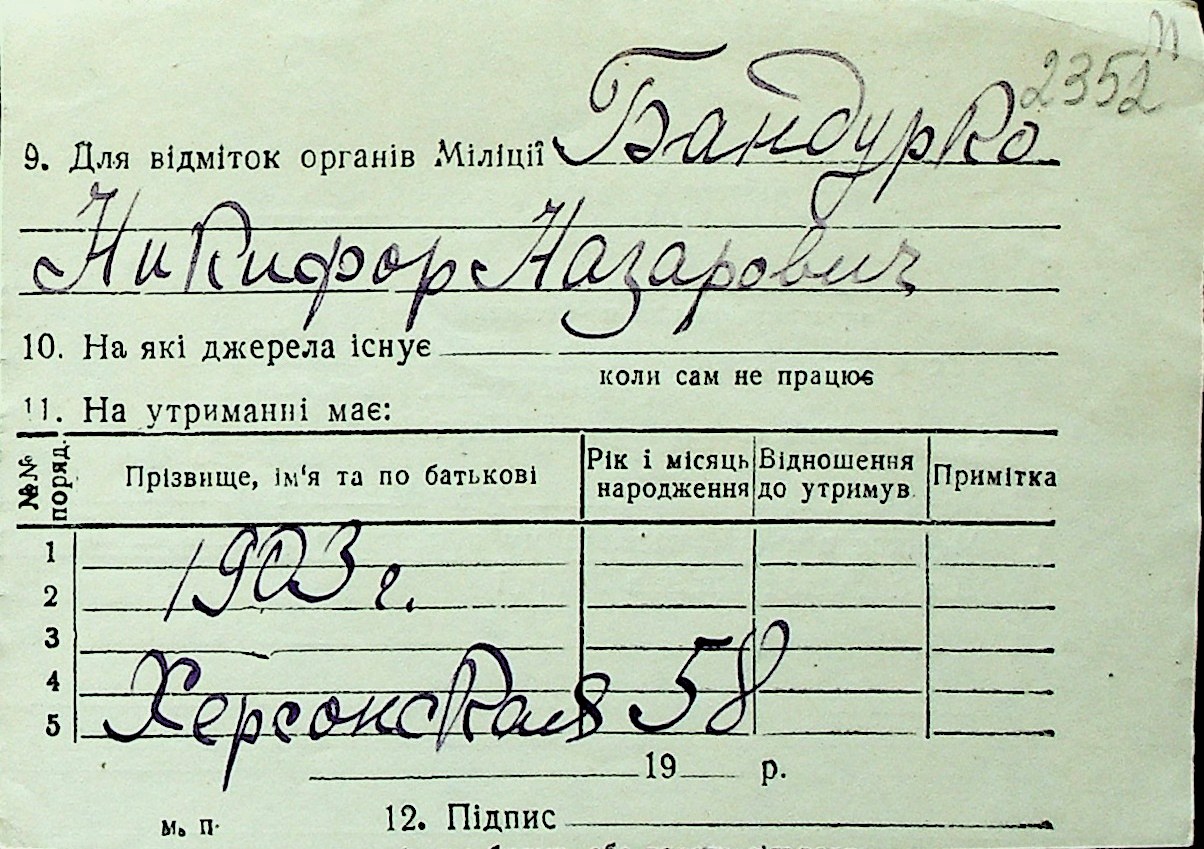 2352
9. Для відміток органів Міліції Бандурко
Никифор Назарович
10. На які джерела існує
коли сам не працює
11. На утриманні має:
№№ поряд. Прізвище, ім'я та по батькові Рік і місяць народження Відношення до утримув. Примітка
1
1903 г.
2
3
4
Херсонская 58
5
19 р.
м. п. 12. Підпис